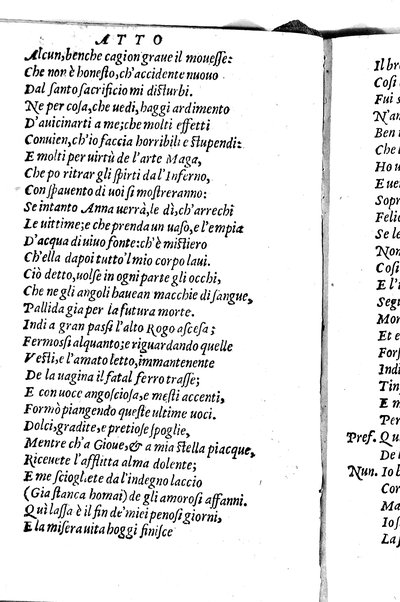 ATTO
Alcun, benche cagion graue il mouesse:
Che non è honesto, ch'accidente nuouo
Dal santo sacrificio mi disturbi.
Ne per cosa, che uedi, haggi ardimento
D'auicinarti a me; che molti effetti
Conuien, ch'io faccia horribili e stupendi:
E molti per uirtù de l'arte Maga,
Che po ritrar gli spirti dal'Inferno,
Con spauento di uoi si mostreranno:
Se intanto Anna uerrà, le dì, ch'arrechi
Le uittime; e che prenda un uaso, e l'empia
D'acqua di uiuo fonte: ch'è mistiero
Ch'ella dapoi tutto'l mio corpo laui.
Ciò detto, uolse in ogni parte gli occhi,
Che ne gli angoli hauean macchie di sangue,
Pallida gia per la futura morte.
Indi a gran passi l'alto Rogo ascesa;
Fermosi alquanto; e riguardando quelle
Vesti, e l'amato letto, immantenente
De la uagina il fatal ferro trasse;
E con uoce angosciosa, e mesti accenti,
Formò piangendo queste ultime uoci.
Dolci, gradite, e pretiose spoglie,
Mentre ch'a Gioue, & a mia stella piacque,
Riceuete l'afflitta alma dolente;
E me sciogliete da l'indegno laccio
(Gia stanca homai) de gli amorosi affanni.
Quì lassa è il fin de' miei penosi giorni,
E la misera uita hoggi finisce
Il br
Cosi
Fui s
N'an
Ben
Che l
Ho u
E ue
Sopr
Felic
Se le
Non
Cosi
E l'i
Mor
Et e
For
Indi
Tin
E m
Per
Pref. Qu
De l
Nun. Io l
Cor
Ma
Io s
Col